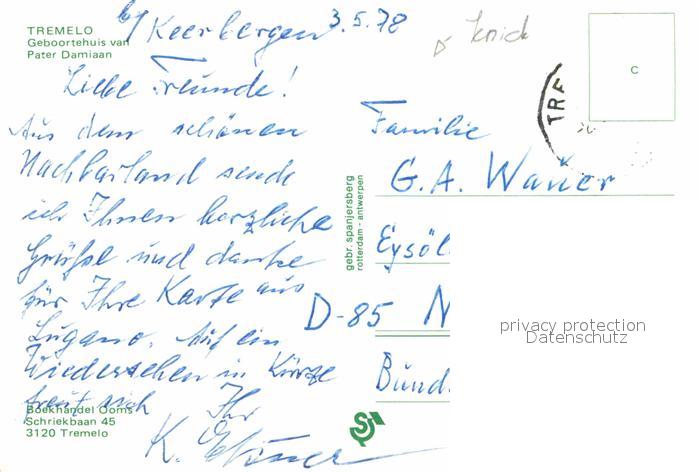 TREMELO
Geboortehuis van
Pater Damiaan
b/ Keerbergen 3.5.78
knick
Liebe Freunde!
Aus dem schönen
Nachbarland sende
ich Ihnen herzliche
Grüße und danke
für Ihre Karte aus
Lugano. Auf ein
Wiedersehen in Kürze
freut sich Ihr
K.
Boekhandel Ooms
Schriekbaan 45
3120 Tremelo
gebr. spanjersberg
rotterdam - antwerpen
C
TRE
Familie
G.A. Wauer
Eysöl
D-85 N
Bund
privacy protection
Datenschutz